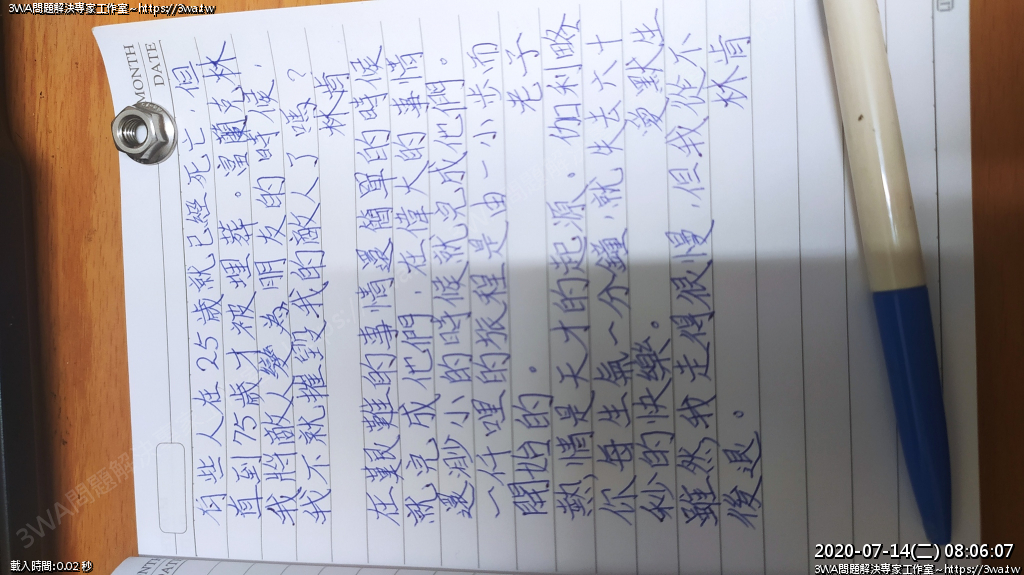 3WA問題解決專家工作室~https://3wa.tw
MONTH
DATE
有些人在25歲就已經死亡,但
直到75歲才被埋葬。富蘭克林
我將敵人變為朋友的時候,
我不就摧毀我的敵人了嗎?
林肯
在艱難的事情還簡單的時候
就完成他們,在偉大的事情
還渺小的時候就完成他們。
一千哩的旅程是由一小步而
開始的。 老子
熱情是天才的起源。 伽利略
你每生氣一分鐘,就失去六十
秒的快樂。 愛默生
雖然我走得很慢,但我從不
後退。 林肯
載入時間:0.02 秒
2020-07-14(二) 08:06:07
3WA問題解決專家工作室~https://3wa.tw